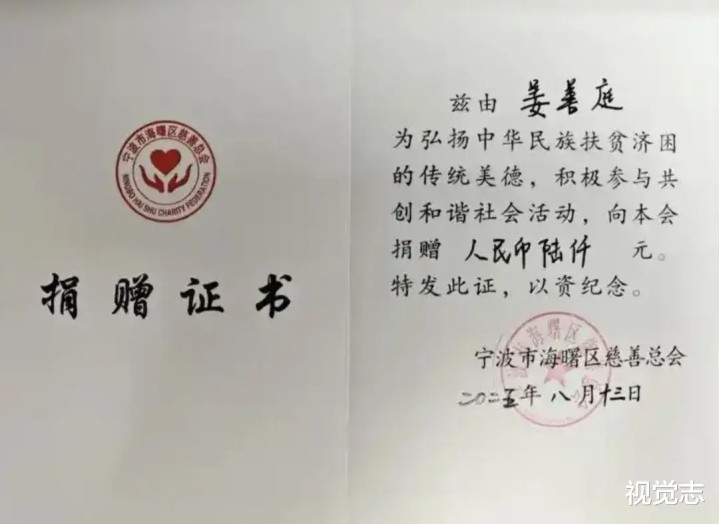 宁波市海曙区慈善总会
NINGBO HAI SHU CHARITY FEDERATION
捐赠证书
兹由 姜善庭
为弘扬中华民族扶贫济困
的传统美德，积极参与共
创和谐社会活动，向本会
捐赠 人民币陆仟 元。
特发此证，以资纪念。
宁波市海曙区慈善总会
二〇二五年八月十三日
视觉志